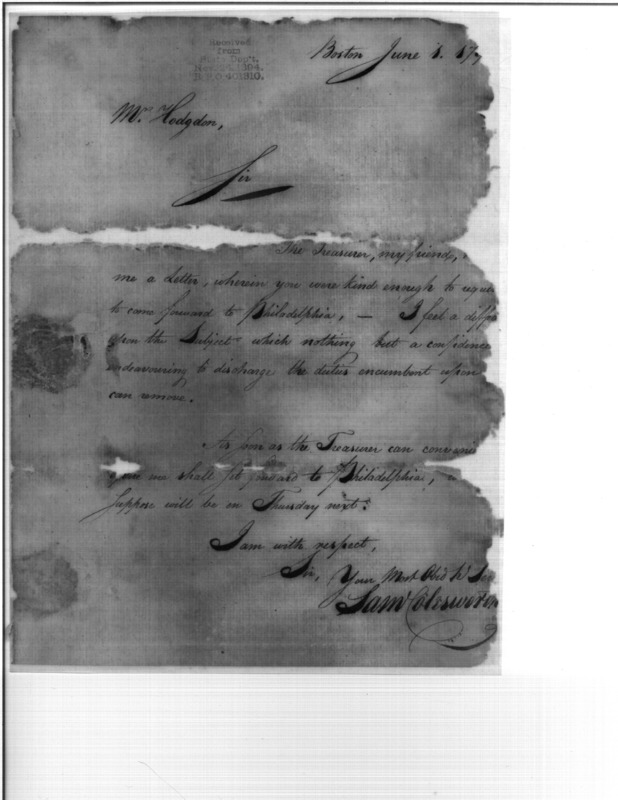 Received
from
State Dep't.
1904.
Boston June 1. 17
Mr. Hodgdon,
Sir
The Treasurer, my friend,
me a Letter, wherein you were kind enough to reque
to come forward to Philadelphia, — I feel a diffi
upon the Subject which nothing but a confidence
endeavouring to discharge the duties encumbent upon
can remove.
As soon as the Treasurer can conveni
one we shall set forward to Philadelphia,
suppose will be on Thursday next.
I am with respect,
Sir, Your Most Obed't Ser
Sam'l Colesworth